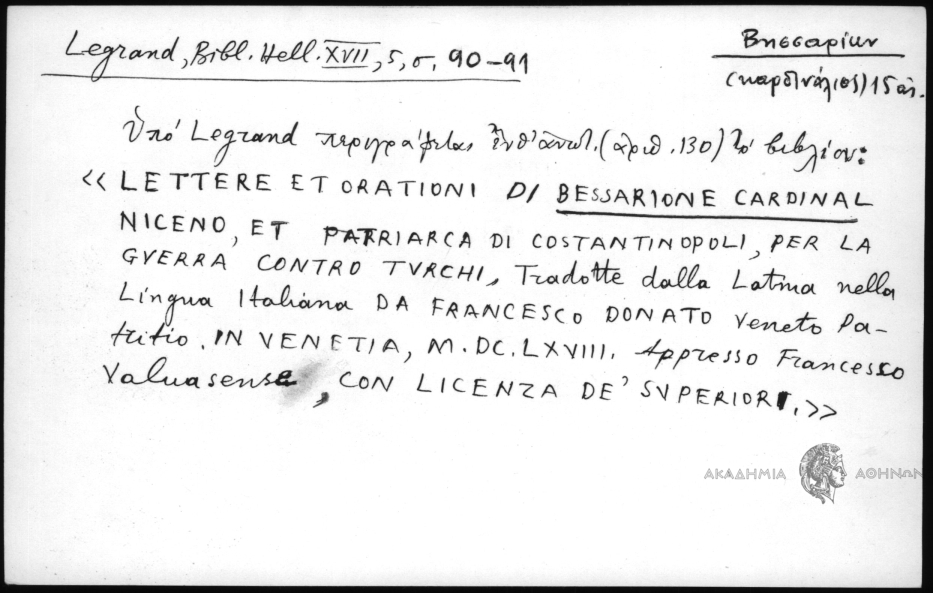 Legrand, Bibl. Hell. XVII, 5, σ. 90-91
Βησσαρίων
(καρδινάλιος) 15 αι.
Ὑπό Legrand περιγράφεται ἐνθ' ἀνωτ. (ἀριθ. 130) τό βιβλίον:
« LETTERE ET ORATIONI DI BESSARIONE CARDINAL
NICENO, ET PATRIARCA DI COSTANTINOPOLI, PER LA
GVERRA CONTRO TVRCHI, Tradotte dalla Latina nella
Lingua Italiana DA FRANCESCO DONATO Veneto Pa-
tritio. IN VENETIA, M.DC.LXVIII. Appresso Francesco
Valuasense, CON LICENZA DE' SVPERIORI. »
ΑΚΑΔΗΜΙΑ ΑΘΗΝΩΝ